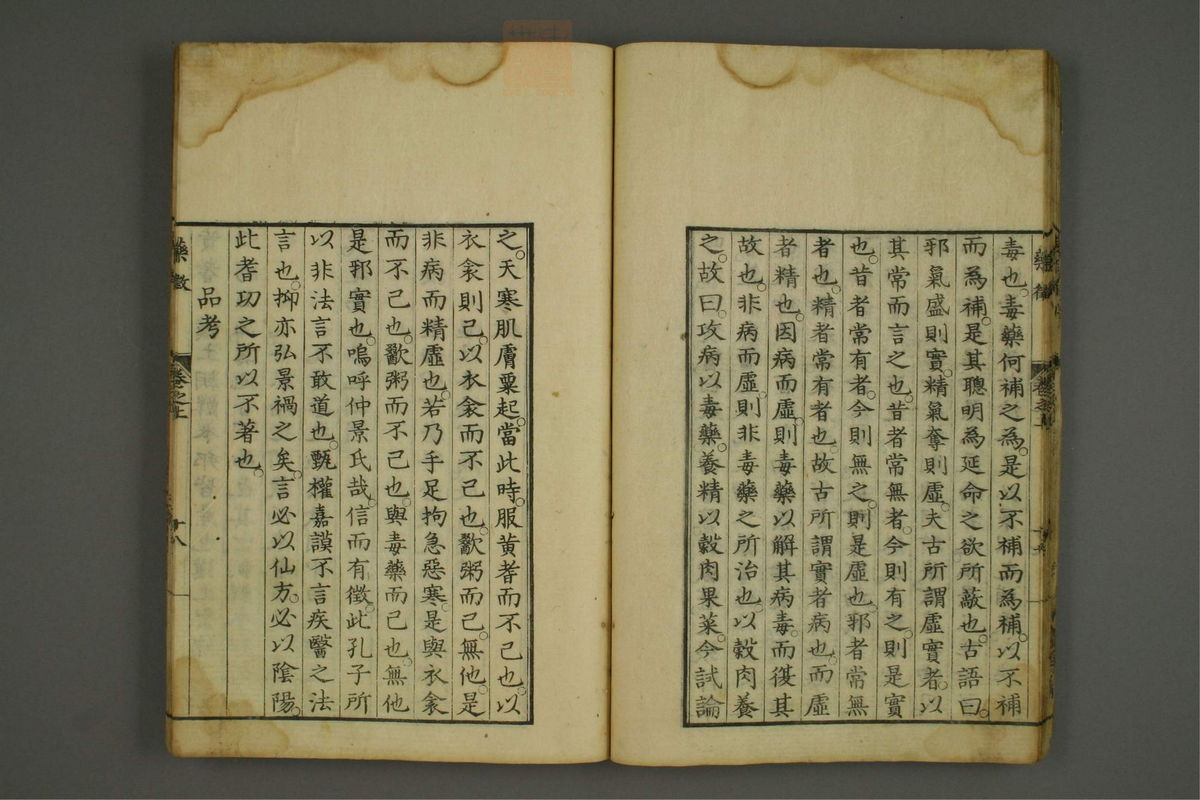 毒也。毒藥何補之為。是以不補而為補。以不補
而為補。是其聰明為延命之欲所蔽也。古語曰。
邪氣盛則實。精氣奪則虛。夫古所謂虛實者。以
其常而言之也。昔者常無者。今則有之。則是實
也。昔者常有者。今則無之。則是虛也。邪者常無
者也。精者常有者也。故古所謂實者病也。而虛
者精也。因病而虛。則毒藥以解其病毒。而復其
故也。非病而虛。則非毒藥之所治也。以穀肉養
之。故曰。攻病以毒藥。養精以穀肉果菜。今試論
之。天寒肌膚粟起。當此時。服黄耆而不已也。以
衣衾則已。以衣衾而不已也。歠粥而已。無他。是
非病而精虛也。若乃手足拘急惡寒。是與衣衾
而不已也。歠粥而不已也。與毒藥而已也。無他
是邪實也。嗚呼仲景氏哉。信而有徵。此孔子所
以非法言不敢道也。甄權嘉謨不言疾醫之法
言也。抑亦弘景禍之矣。言必以仙方。必以陰陽。
此耆功之所以不著也。
品考
藥徵
卷之上
十八